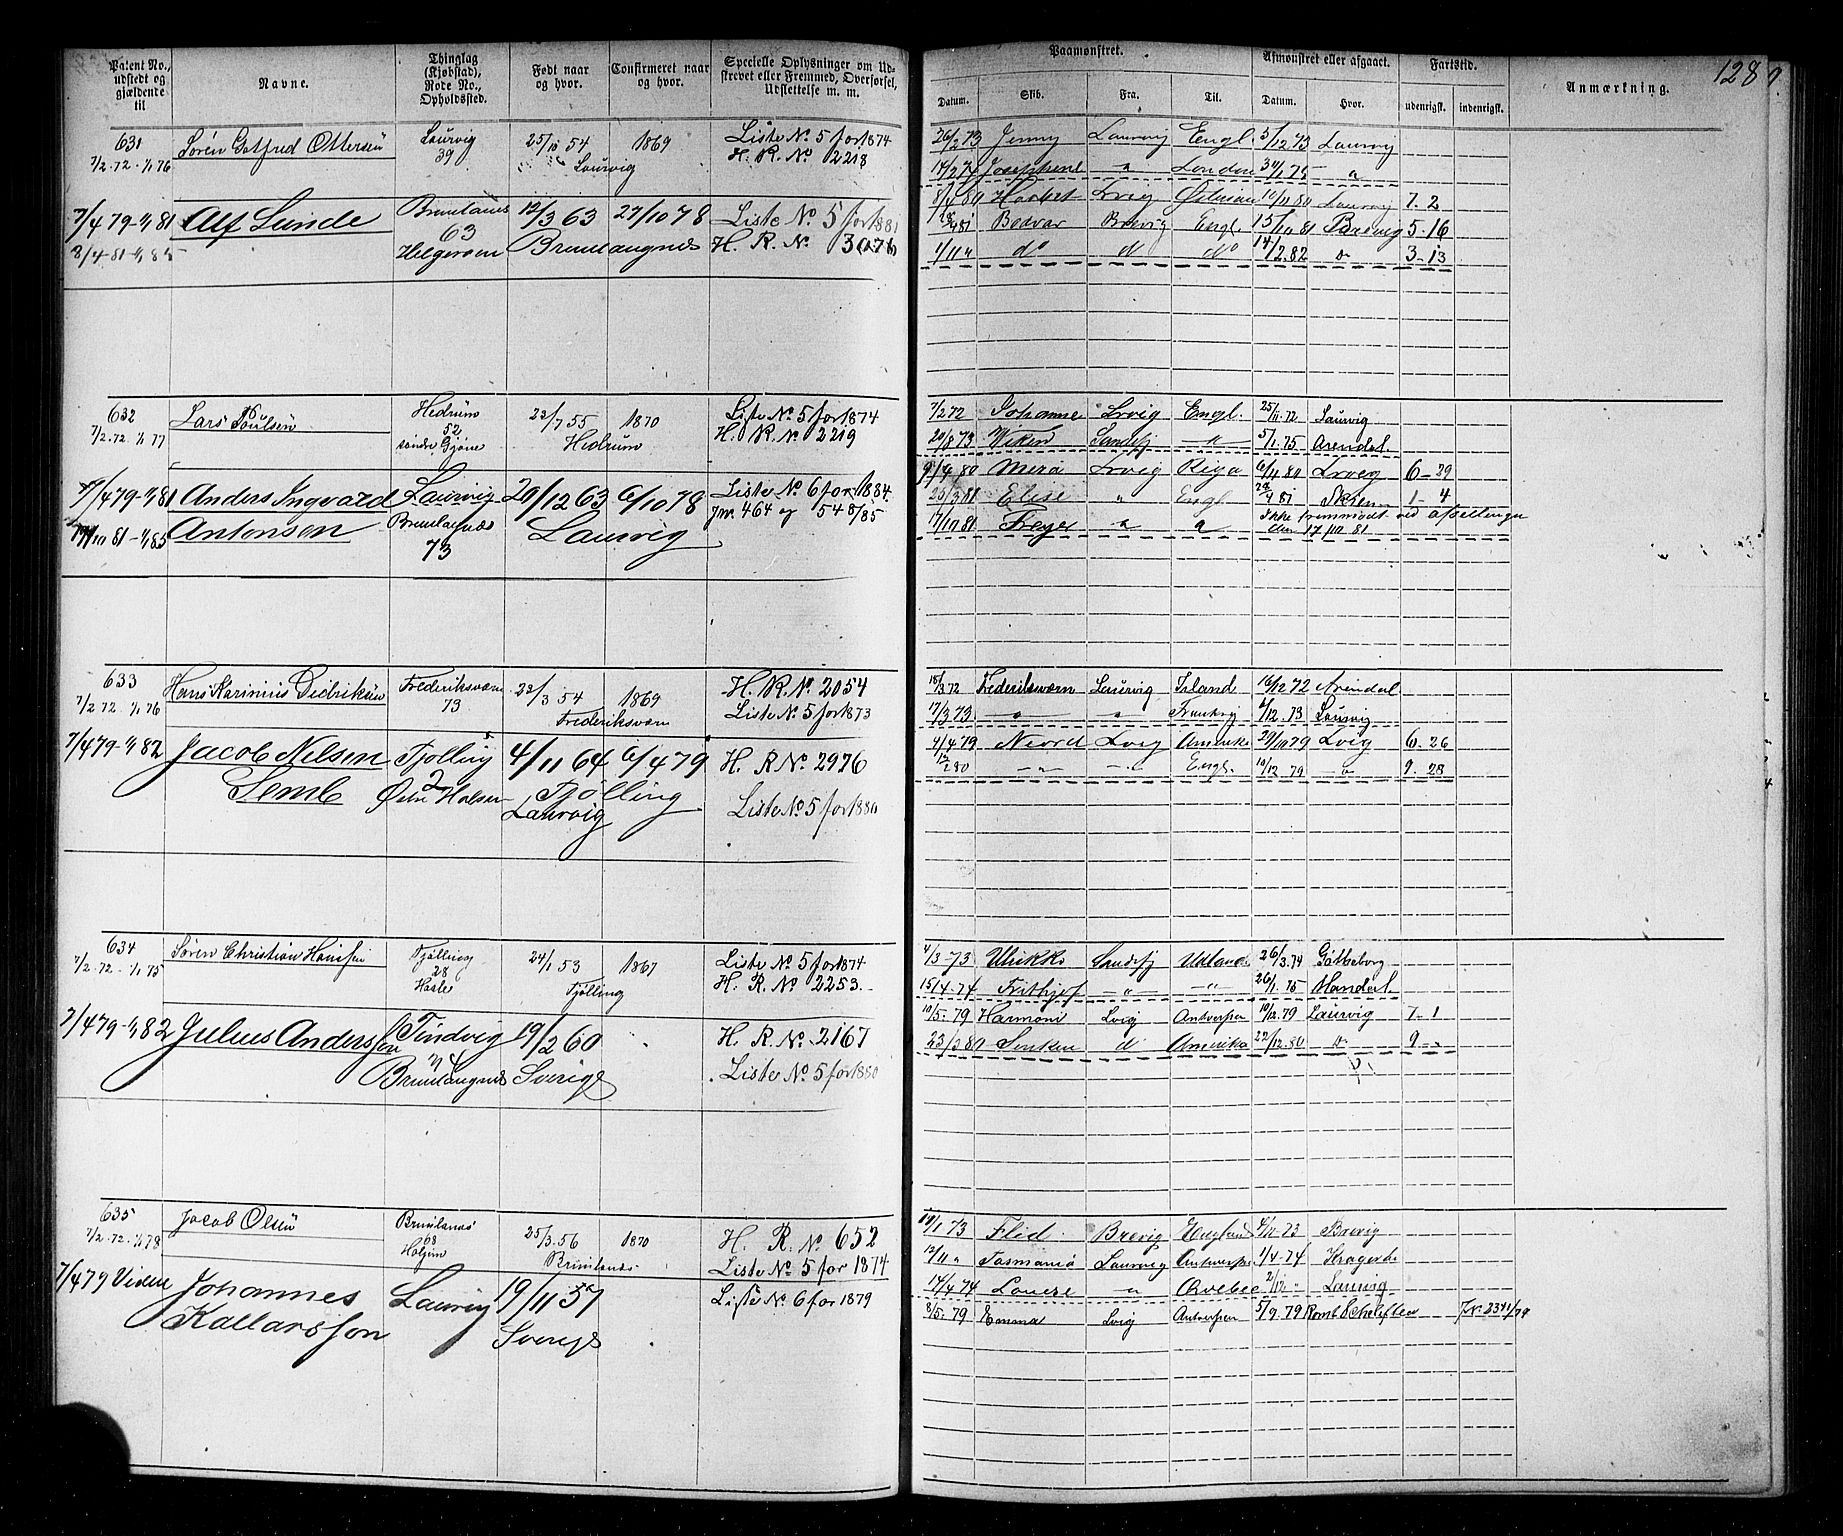 128
Patent No., udstedt og gjældende til
Navne.
Thinglag (Kjøbstad), Rode No., Opholdssted.
Født naar og hvor.
Confirmeret naar og hvor.
Specielle Oplysninger om Udskrevet eller Fremmed, Overførsel, Udslettelse m. m.
Paamønstret.
Afmønstret eller afgaaet.
Fartstid.
Anmærkning.
Datum. Skib. Fra. Til. Datum. Hvor. udenrigsk. indenrigsk.
631
7/2.72-1/1 76 Søren Gotfred Ottersen Laurvig 39 25/10 54 Laurvig 1869 Liste No 5 for 1874
H. R. No 2218
26/2 73 Jenny Laurvig Engl. 5/12 73 Laurvig
14/2 74 Josephine " London 30/1 75 "
7/4 79-1/1 81 Alf Lunde Brunlanes 63 Helgeroen 12/3 63 Brunlangnes 27/10 78 Liste No 5 for 1881
8/4-81-1/1 85 H. R. No 3076
8/4 80 Lvig 10/11 80 Laurvig 7. 2
Bodvar Brevig Engl. 15/10 81 Brevig 5-16
1/11 " do do do 14/2.82 do 3-13
632
7/2.72-1/1 77 Lars Poulsen Hedrum 52 søndre Gjøne 22/7 55 Hedrum 1870 Liste No 5 for 1874
H. R. No 2219
7/2 72 Johanne Lrvig Engl. 25/11.72 Laurvig
20/8 73 Viken Sandefj " 5/1.75 Arendal
7/4 79-1/1 81 Anders Ingvard Laurvig 20/12 63 6/10 78 Liste No 6 for 1884
17/10 81-1/1 85 Antonsen Brunlagnes 73 Laurvig Jnr 464 og 548/85
9/4 80 Mira Lrvig Riga 6/11 80 Lrvig 6-29
25/3 81 Elise " Engl. 28/4 81 Skien 1-4
17/10 81 Freyer " " Ikke fremmødt ved afseilingen
den 17/10 81
633
7/2 72-1/1 76 Hans Karinius Didriksen Frederiksværn 73 22/3 54 Frederiksværn 1869 H. R. No. 2054
Liste No. 5 for 1873
18/3 72 Frederiksværn Laurvig Island 16/12 72 Arendal
17/3 73 " " Frankrig 6/12.73 Laurvig
7/4 79-1/1 82 Jacob Nilsen Tjølling 2 4/11 64 6/4 79 H. R No. 2976
Semb Østre Halsen Laurvig Tjølling Liste No. 5 for 1880
4/4 79 Neord Lvig Amerika 20/10 79 Lvig 6. 26
" " Engl. 10/12 79 " 9. 28
634
7/2-72-1/1 75 Søren Christian Hansen Tjølling 28 Hasle 24/1 53 Tjølling 1867 Liste No 5 for 1874
H. R. No 2253
4/3-73 Ulrikke Sandefj Udland 26/3.74 Gøtheborg
15/4-74 Frithjof " " 26/1.75 Mandal
7/4 79-1/1 82 Julius Anderssen Tindvig 74 Brunlangnes 19/2 60 Sverige H. R. No 2167
Liste No. 5 for 1880
10/5-79 Harmoni Lvig Antverpen 10/12.79 Laurvig 7-1
23/3 80 d Amerika 22/12.80 do 9-"
635
7/2.72-1/1 78 Jacob Olsen Brunlanes 68 Holjem 25/3.56 Brunlanes 1870 H. R. No 652
Liste No 5 for 1874
Flid Brevig England 73 Brevig
12/11 " Tasmania Laurvig Antwerpen 1/4-74 Kragerø
14/4 74 Louise " Qvebec 2/12 " Laurvig
7/4 79 Videre Johannes Laurvig 19/11 57 Liste No 6 for 1879
Kallarsson Sverige
8/5-79 Emma Lvig Antverpen 5/9.79 Jnr 2341/79